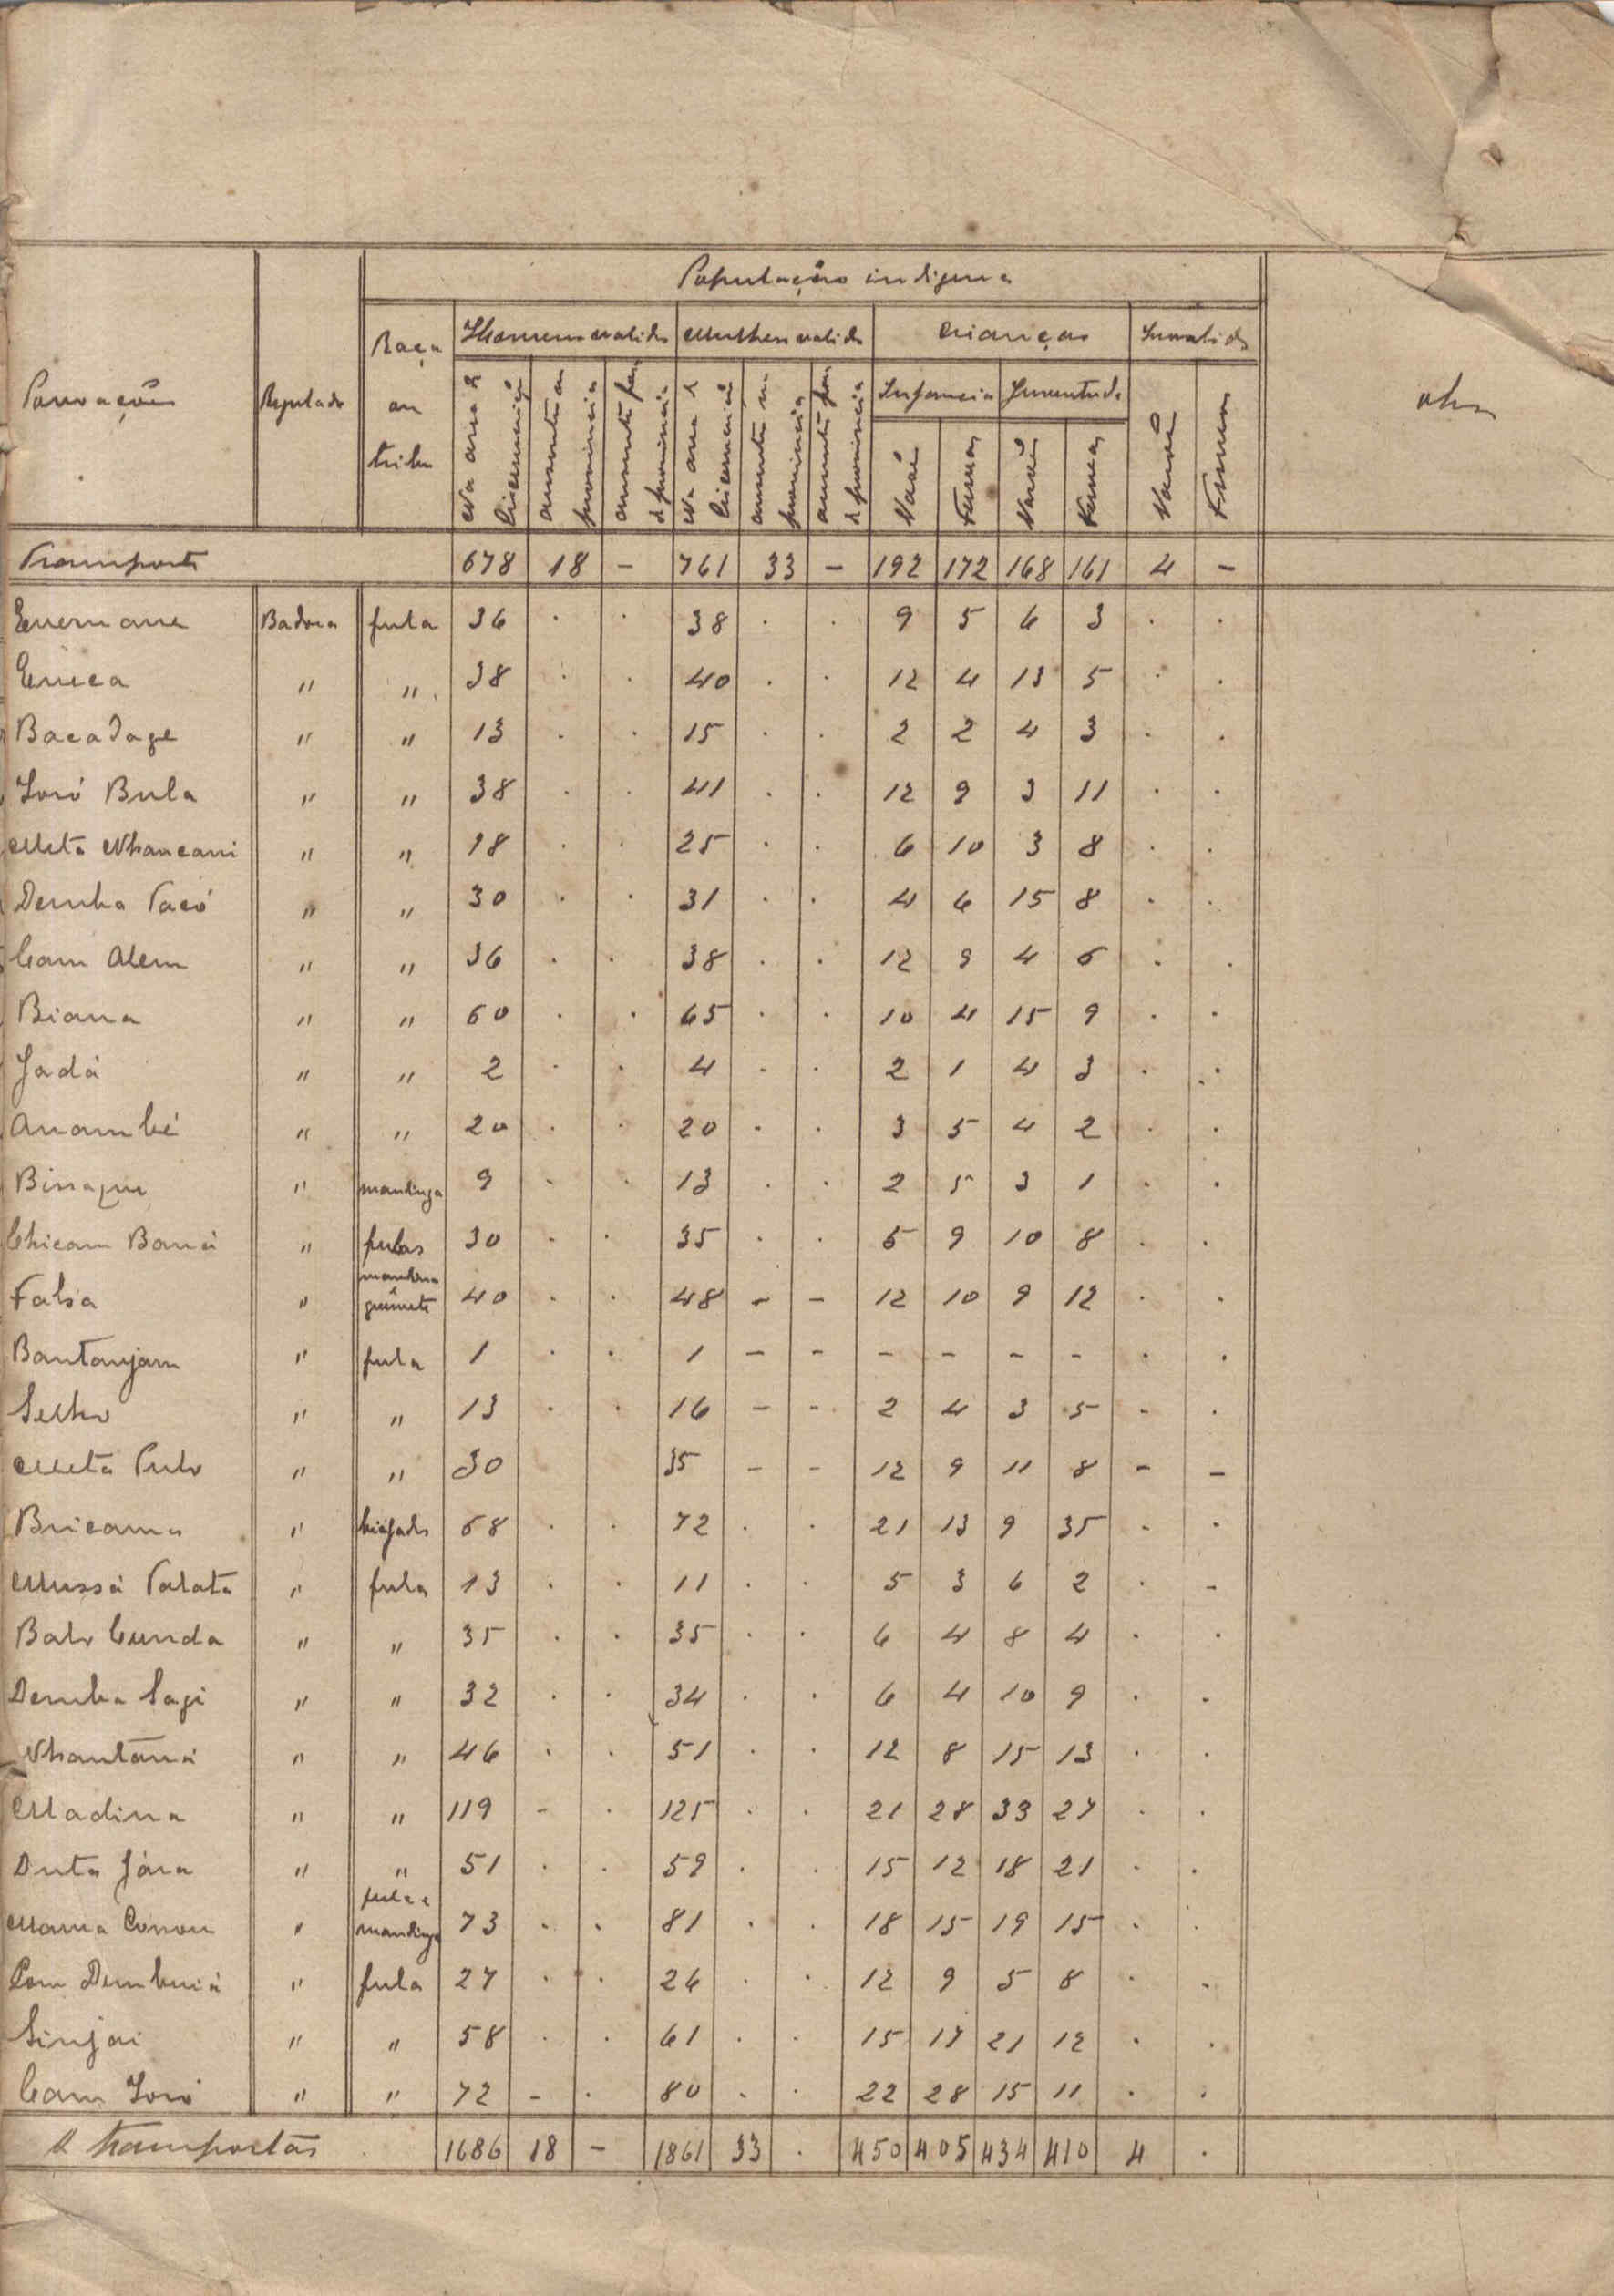 População indigena
Povoações Regulado Raça ou tribu Homens validos Mulheres validas Crianças Invalidos Obs
Infancia Juventude
Na area d circunscrição ausentes na provincia ausentes fora d provincia Na area d circunscrição ausentes na provincia ausentes fora d provincia Varões Femeas Varões Femeas Varões Femeas
Transporte 678 18 - 761 33 - 192 172 168 161 4 -
Badora fula 36 . . 38 . . 9 5 6 3 . .
" " 38 . . 40 . . 12 4 13 5 . .
Bacadage " " 13 . . 15 . . 2 2 4 3 . .
Soró Bula " " 38 . . 41 . . 12 9 3 11 . .
Metá Nhancani " " 18 . . 25 . . 6 10 3 8 . .
Demba Tacó " " 30 . . 31 . . 4 6 15 8 . .
Cam Alem " " 36 . . 38 . . 12 9 4 6 . .
Biana " " 60 . . 65 . . 10 4 15 9 . .
Jadá " " 2 . . 4 . . 2 1 4 3 . .
Anambé " " 20 . . 20 . . 3 5 4 2 . .
Bissaque " mandinga 9 . . 13 . . 2 5 3 1 . .
Chicam Baná " fulas 30 . . 35 . . 5 9 10 8 . .
Falsa " 40 . . 48 - - 12 10 9 12 . .
Bantanjam " fula 1 . . 1 - - - - - - . .
Selho " " 13 . . 16 - - 2 4 3 5 - .
Metá Pulo " " 30 35 - - 12 9 11 8 - -
Bricama " biafada 68 . . 72 . . 21 13 9 35 . .
Mussá Talata " fula 13 . . 11 . . 5 3 6 2 . -
Balo Cunda " " 35 . . 35 . . 6 4 8 4 . .
Demba Sagi " " 32 . . 34 . . 6 4 10 9 . .
Nhantáná " " 46 . . 51 . . 12 8 15 13 . .
Madina " " 119 - . 125 . . 21 28 33 27 . .
Duta Jára " " 51 . . 59 . . 15 12 18 21 . .
Mama Conou " fula e mandinga 73 . . 81 . . 18 15 19 15 . .
fula 27 . . 26 . . 12 9 5 8 . .
Sinjai " " 58 . . 61 . . 15 17 21 12 . .
Cam Soró " " 72 - . 80 . . 22 28 15 11 . .
A transportar 1686 18 - 1861 33 . 450 405 434 410 4 .